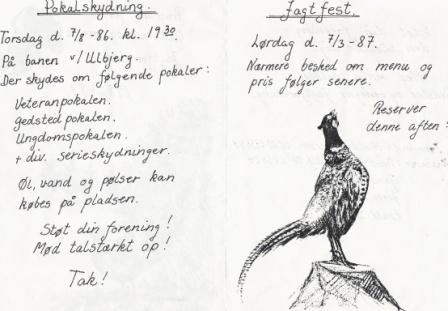 Pokalskydning.
Torsdag d. 7/8 - 86. kl. 19³⁰.
På banen v/ Ulbjerg.
Der skydes om følgende pokaler:
Veteranpokalen.
gedsted pokalen.
Ungdomspokalen.
+ div. serieskydninger.
Øl, vand og pølser kan
købes på pladsen.
Støt din forening!
Mød talstærkt op!
Tak!
Jagtfest.
Lørdag d. 7/3 - 87.
Nærmere besked om menu og
pris følger senere.
Reserver
denne aften!